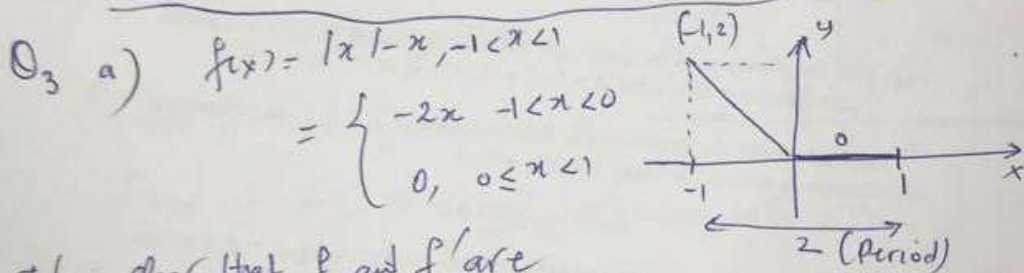 Q3 a) f(x) = |x|-x, -1<x<1
= { -2x -1<x<0
0, 0≤x<1
(-1,2)
y
0
-1
1
x
2 (Period)
that f and f' are